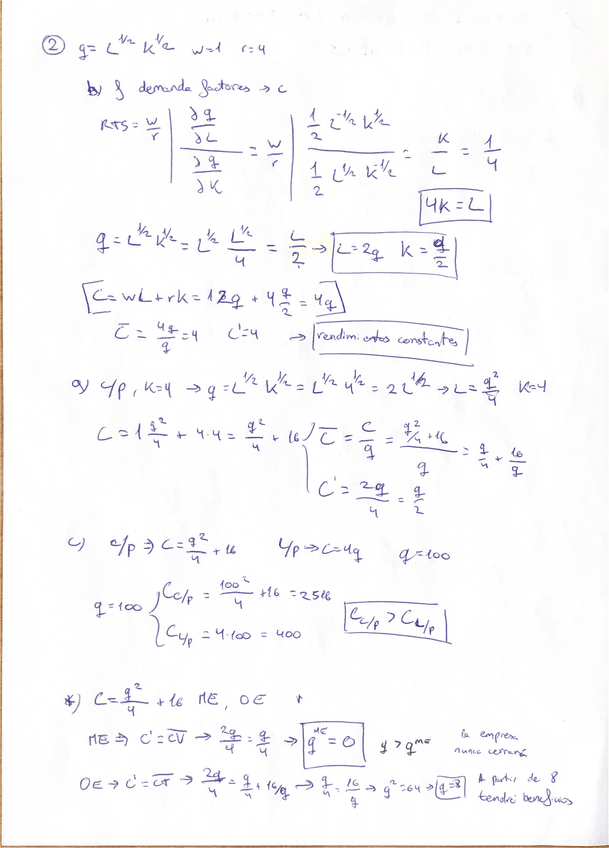 ② q = L^1/2 K^1/2 w=1 r=4
b) f demanda factores → c
RTS = w/r | (∂q/∂L)/(∂q/∂K) = w/r | (1/2 L^-1/2 K^1/2)/(1/2 L^1/2 K^-1/2) = K/L = 1/4
4K = L
q = L^1/2 K^1/2 = L^1/2 L^1/2/4 = L/2 → L=2q K = q/2
C = wL + rK = 1 2q + 4 q/2 = 4q
C̄ = 4q/q = 4 C'=4 → rendimientos constantes
a) c/p, K=4 → q = L^1/2 K^1/2 = L^1/2 4^1/2 = 2L^1/2 → L = q²/4 K=4
C = 1 q²/4 + 4·4 = q²/4 + 16 C̄ = C/q = (q²/4 + 16)/q = q/4 + 16/q
C' = 2q/4 = q/2
c) c/p ⇒ C = q²/4 + 16 L/p → C=4q q=100
q=100 { C c/p = 100²/4 + 16 = 2516
C L/p = 4·100 = 400
C c/p > C L/p
*) C = q²/4 + 16 ME, OE
ME ⇒ C' = C̄V̄ → 2q/4 = q/4 → q^ME = 0 y > q^ME la empresa nunca cerrará
OE → C' = C̄T̄ → 2q/4 = q/4 + 16/q → q/4 = 16/q → q² = 64 → q=8 A partir de 8 tendré beneficios